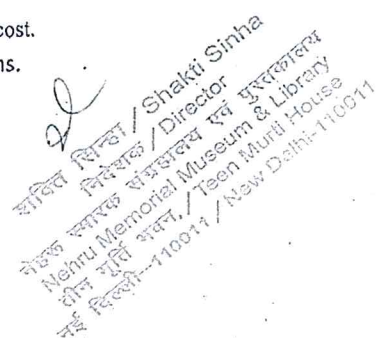 cost.
ns.
शक्ति सिन्हा / Shakti Sinha
निदेशक / Director
नेहरू स्मारक संग्रहालय एवं पुस्तकालय
Nehru Memorial Museum & Library
तीन मूर्ति भवन, / Teen Murti House
नई दिल्ली-110011 / New Delhi-110011